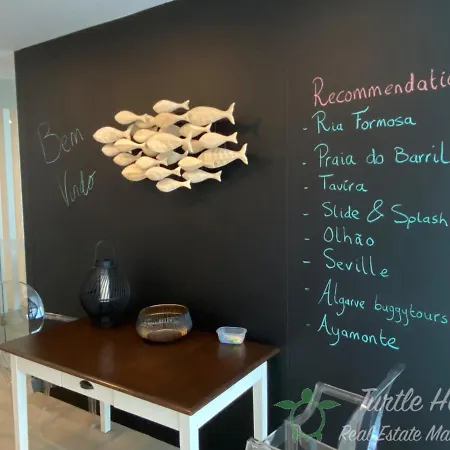 Bem
Vindo
Recommendatio
- Ria Formosa
- Praia do Barril
- Tavira
- Slide & Splash
- Olhão
- Seville
- Algarve buggytours
- Ayamonte
Turtle H
Real Estate Ma